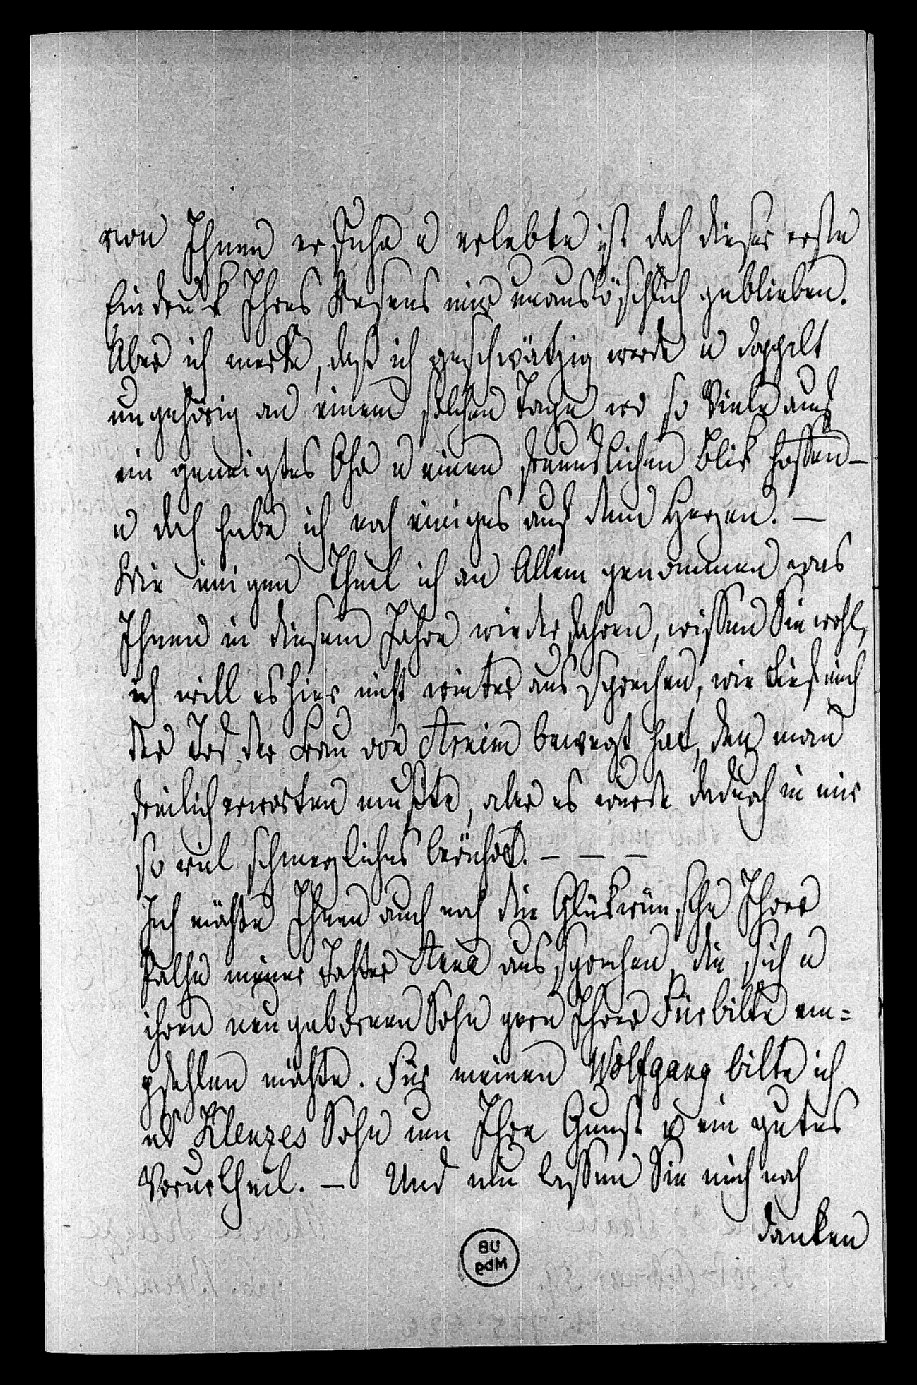 von Ihnen erfuhr u erlebte ist doch dieser erste
Eindruck Ihres Wesens mir unauslöschlich geblieben.
Aber ich merke, daß ich geschwätzig werde u doppelt
ungehörig an einem solchen Tage wo so Viele auf
ein geneigtes Ohr u einen freundlichen Blick hoffen –
u doch habe ich noch einiges auf dem Herzen. –
Wie innigen Theil ich an Allem genommen was
Ihnen in diesem Jahre wiederfahren, wissen Sie wohl,
ich will es hier nicht weiter aussprechen, wie tief mich
der Tod der Frau von Arnim bewegt hat, den man
freilich erwarten mußte, aber es wurde dadurch in mir
so viel schmerzliches berührt. – – –
Ich möchte Ihnen auch noch die Glückwünsche Ihrer
Pathe meiner Tochter aussprochen, die sich u
ihren neugebornen Sohn gern Ihrer Fürbitte em=
pfehlen möchte. Für meinen Wolfgang bitte ich
als Klenzes Sohn um Ihre Gunst u ein gutes
Vorurtheil. – Und nun lassen Sie mich noch
danken
UB
Mbg